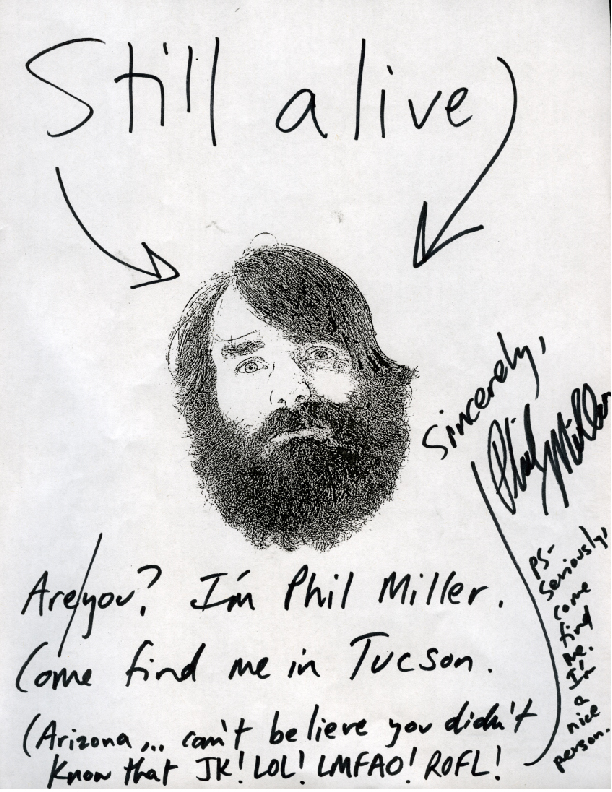 Still alive
Are you? I'm Phil Miller.
Come find me in Tucson.
(Arizona... can't believe you didn't
know that JK! LOL! LMFAO! ROFL!
Sincerely,
Phil Miller
PS-
Seriously,
come
find
me. I'm
a
nice
person.